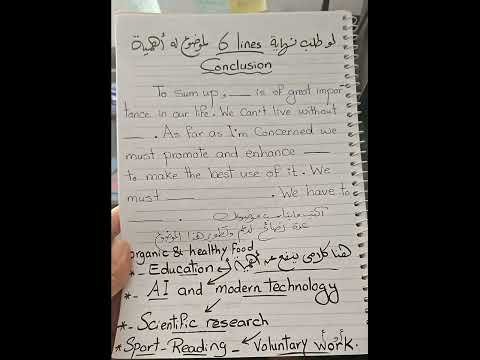 لو طلب نهاية 6 lines لموضوع له أهمية
Conclusion
To sum up, ___ is of great impor-
tance in our life. We can't live without
___. As far as I'm concerned we
must promote and enhance ___
to make the best use of it. We
must ___. We have to
___. أكتب مايناسب موضوعك
عدة نصائح لدعم وتطوير هذا الموضوع
organic & healthy food
*- Education هنا كلامى ينفع عن أهمية
*- AI and modern technology
*- Scientific research
*- Sport - Reading - Voluntary work.